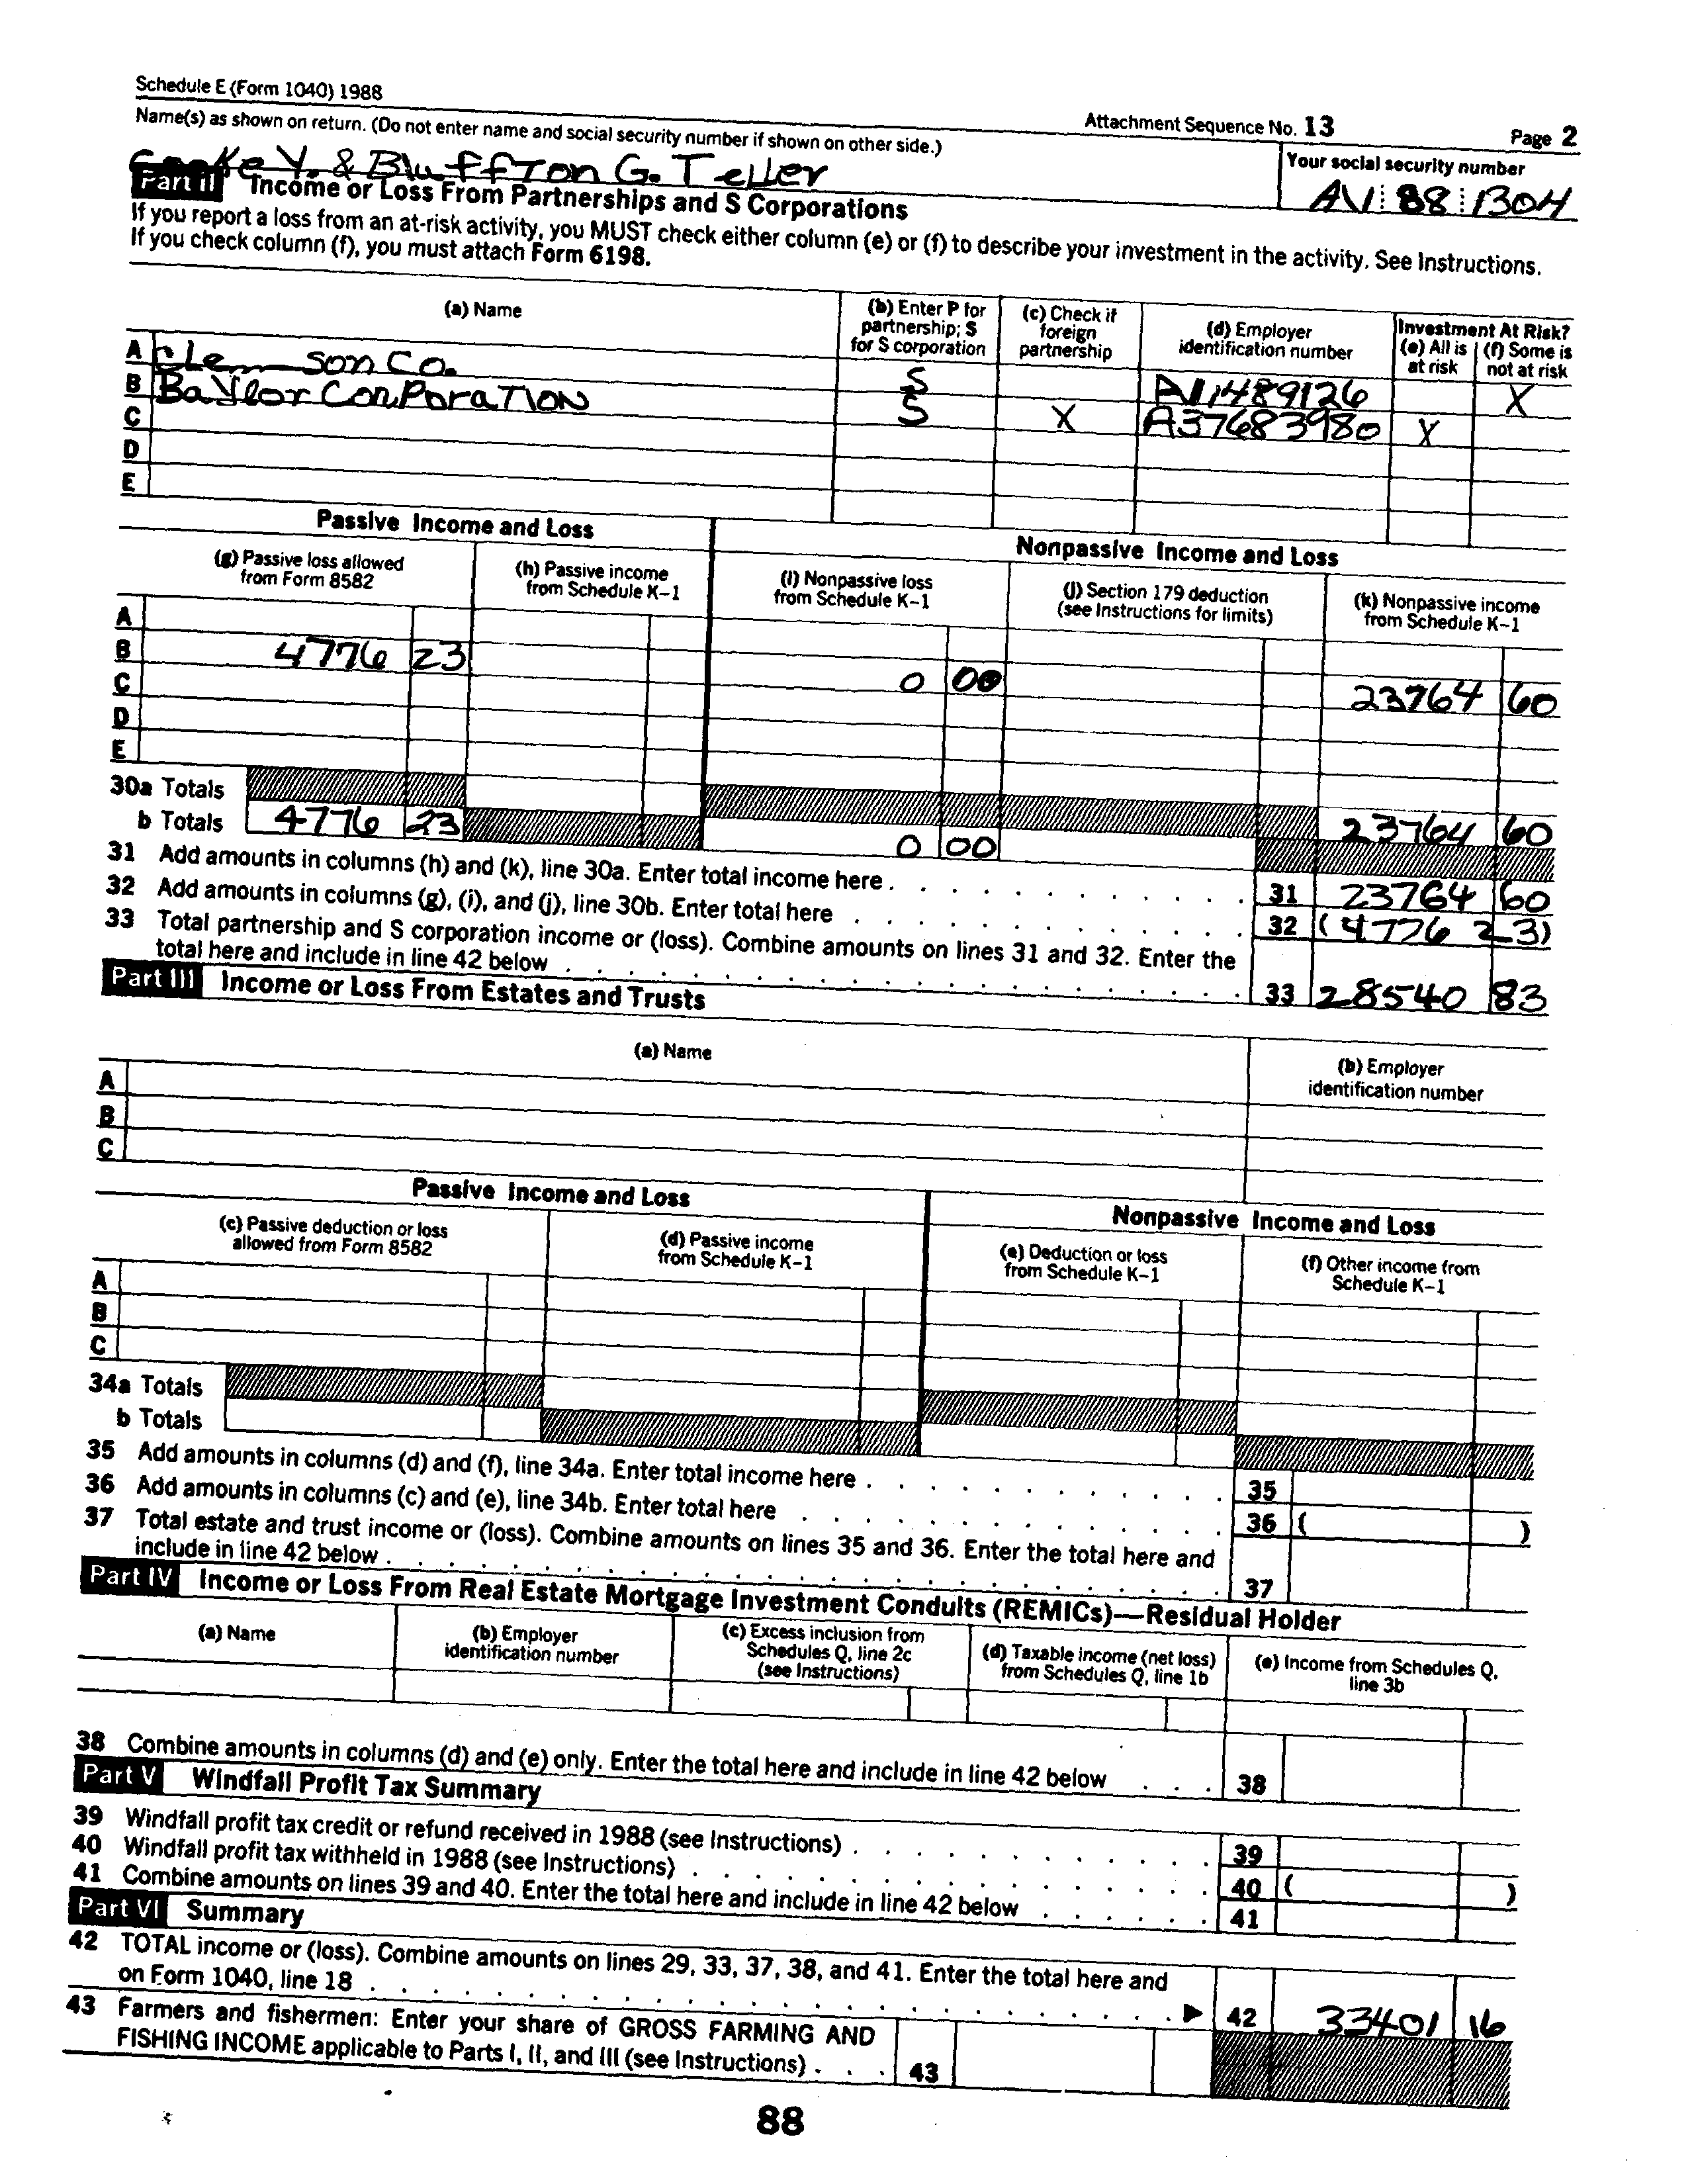 Schedule E (Form 1040) 1988
Attachment Sequence No. 13
Page 2
Name(s) as shown on return. (Do not enter name and social security number if shown on other side.)
Your social security number
Y. & Bluffton G. Teller
AVI 88 1304
Part II Income or Loss From Partnerships and S Corporations
If you report a loss from an at-risk activity, you MUST check either column (e) or (f) to describe your investment in the activity. See Instructions.
If you check column (f), you must attach Form 6198.
(a) Name
(b) Enter P for partnership; S for S corporation
(c) Check if foreign partnership
(d) Employer identification number
Investment At Risk?
(e) All is at risk
(f) Some is not at risk
A Clemson Co. S X
B Baylor Corporation S X A37683980 X
C
D
E
Passive Income and Loss
Nonpassive Income and Loss
(g) Passive loss allowed from Form 8582
(h) Passive income from Schedule K–1
(i) Nonpassive loss from Schedule K–1
(j) Section 179 deduction (see Instructions for limits)
(k) Nonpassive income from Schedule K–1
A
B 4776 23 0 00 23764 60
C
D
E
30a Totals 23764 60
b Totals 4776 23 0 00
31 Add amounts in columns (h) and (k), line 30a. Enter total income here 31 23764 60
32 Add amounts in columns (g), (i), and (j), line 30b. Enter total here 32 (4776 23)
33 Total partnership and S corporation income or (loss). Combine amounts on lines 31 and 32. Enter the
total here and include in line 42 below 33 28540 83
Part III Income or Loss From Estates and Trusts
(a) Name
(b) Employer identification number
A
B
C
Passive Income and Loss
Nonpassive Income and Loss
(c) Passive deduction or loss allowed from Form 8582
(d) Passive income from Schedule K–1
(e) Deduction or loss from Schedule K–1
(f) Other income from Schedule K–1
A
B
C
34a Totals
b Totals
35 Add amounts in columns (d) and (f), line 34a. Enter total income here 35
36 Add amounts in columns (c) and (e), line 34b. Enter total here 36 ( )
37 Total estate and trust income or (loss). Combine amounts on lines 35 and 36. Enter the total here and
include in line 42 below 37
Part IV Income or Loss From Real Estate Mortgage Investment Conduits (REMICs)—Residual Holder
(a) Name
(b) Employer identification number
(c) Excess inclusion from Schedules Q, line 2c (see Instructions)
(d) Taxable income (net loss) from Schedules Q, line 1b
(e) Income from Schedules Q, line 3b
38 Combine amounts in columns (d) and (e) only. Enter the total here and include in line 42 below 38
Part V Windfall Profit Tax Summary
39 Windfall profit tax credit or refund received in 1988 (see Instructions) 39
40 Windfall profit tax withheld in 1988 (see Instructions) 40 ( )
41 Combine amounts on lines 39 and 40. Enter the total here and include in line 42 below 41
Part VI Summary
42 TOTAL income or (loss). Combine amounts on lines 29, 33, 37, 38, and 41. Enter the total here and
on Form 1040, line 18 ▶ 42 33401 16
43 Farmers and fishermen: Enter your share of GROSS FARMING AND
FISHING INCOME applicable to Parts I, II, and III (see Instructions) 43
88